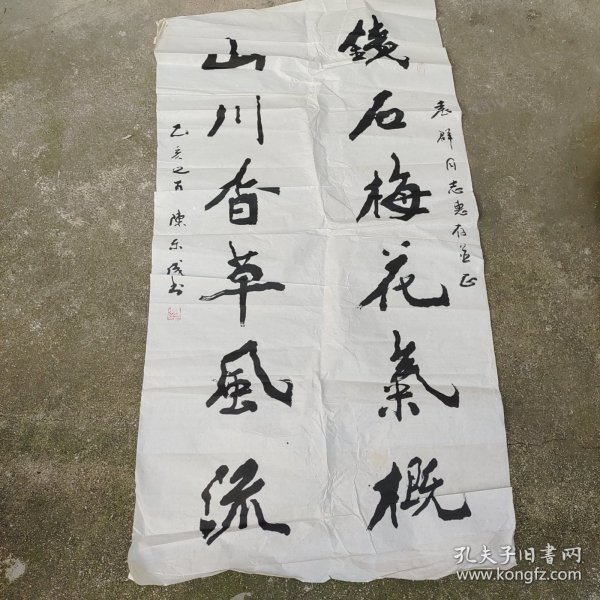 鐵石梅花氣概
群同志惠存並正
山川香草風流
乙亥之 陳东成书
孔夫子旧书网
www.kongfz.com